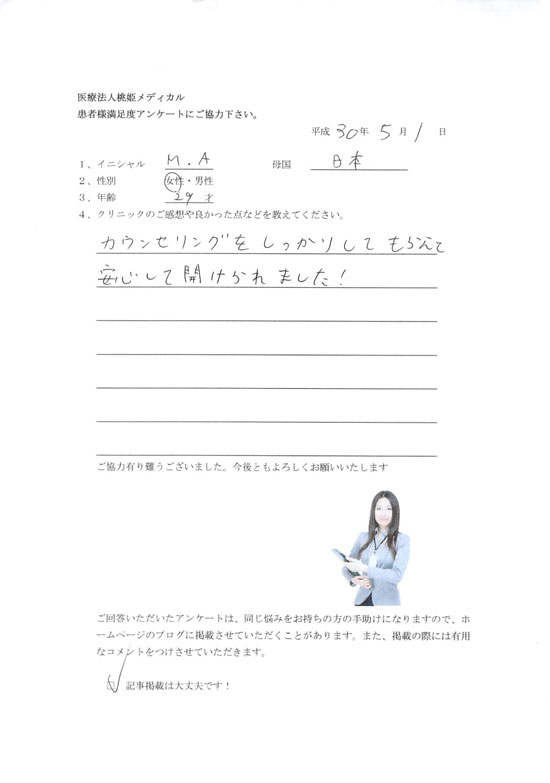 医療法人桃姫メディカル
患者様満足度アンケートにご協力下さい。
平成 30年 5月 1日
1、イニシャル M.A 母国 日本
2、性別 女性・男性
3、年齢 29 才
4、クリニックのご感想や良かった点などを教えてください。
カウンセリングをしっかりしてもらえて
安心して開けられました!
ご協力有り難うございました。今後ともよろしくお願いいたします
ご回答いただいたアンケートは、同じ悩みをお持ちの方の手助けになりますので、ホ
ームページのブログに掲載させていただくことがあります。また、掲載の際には有用
なコメントをつけさせていただきます。
記事掲載は大丈夫です!